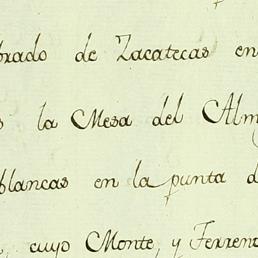 brado de Zacatecas en
s la Mesa del Alm
blancas en la punta d
cuyo Monte, y Terren